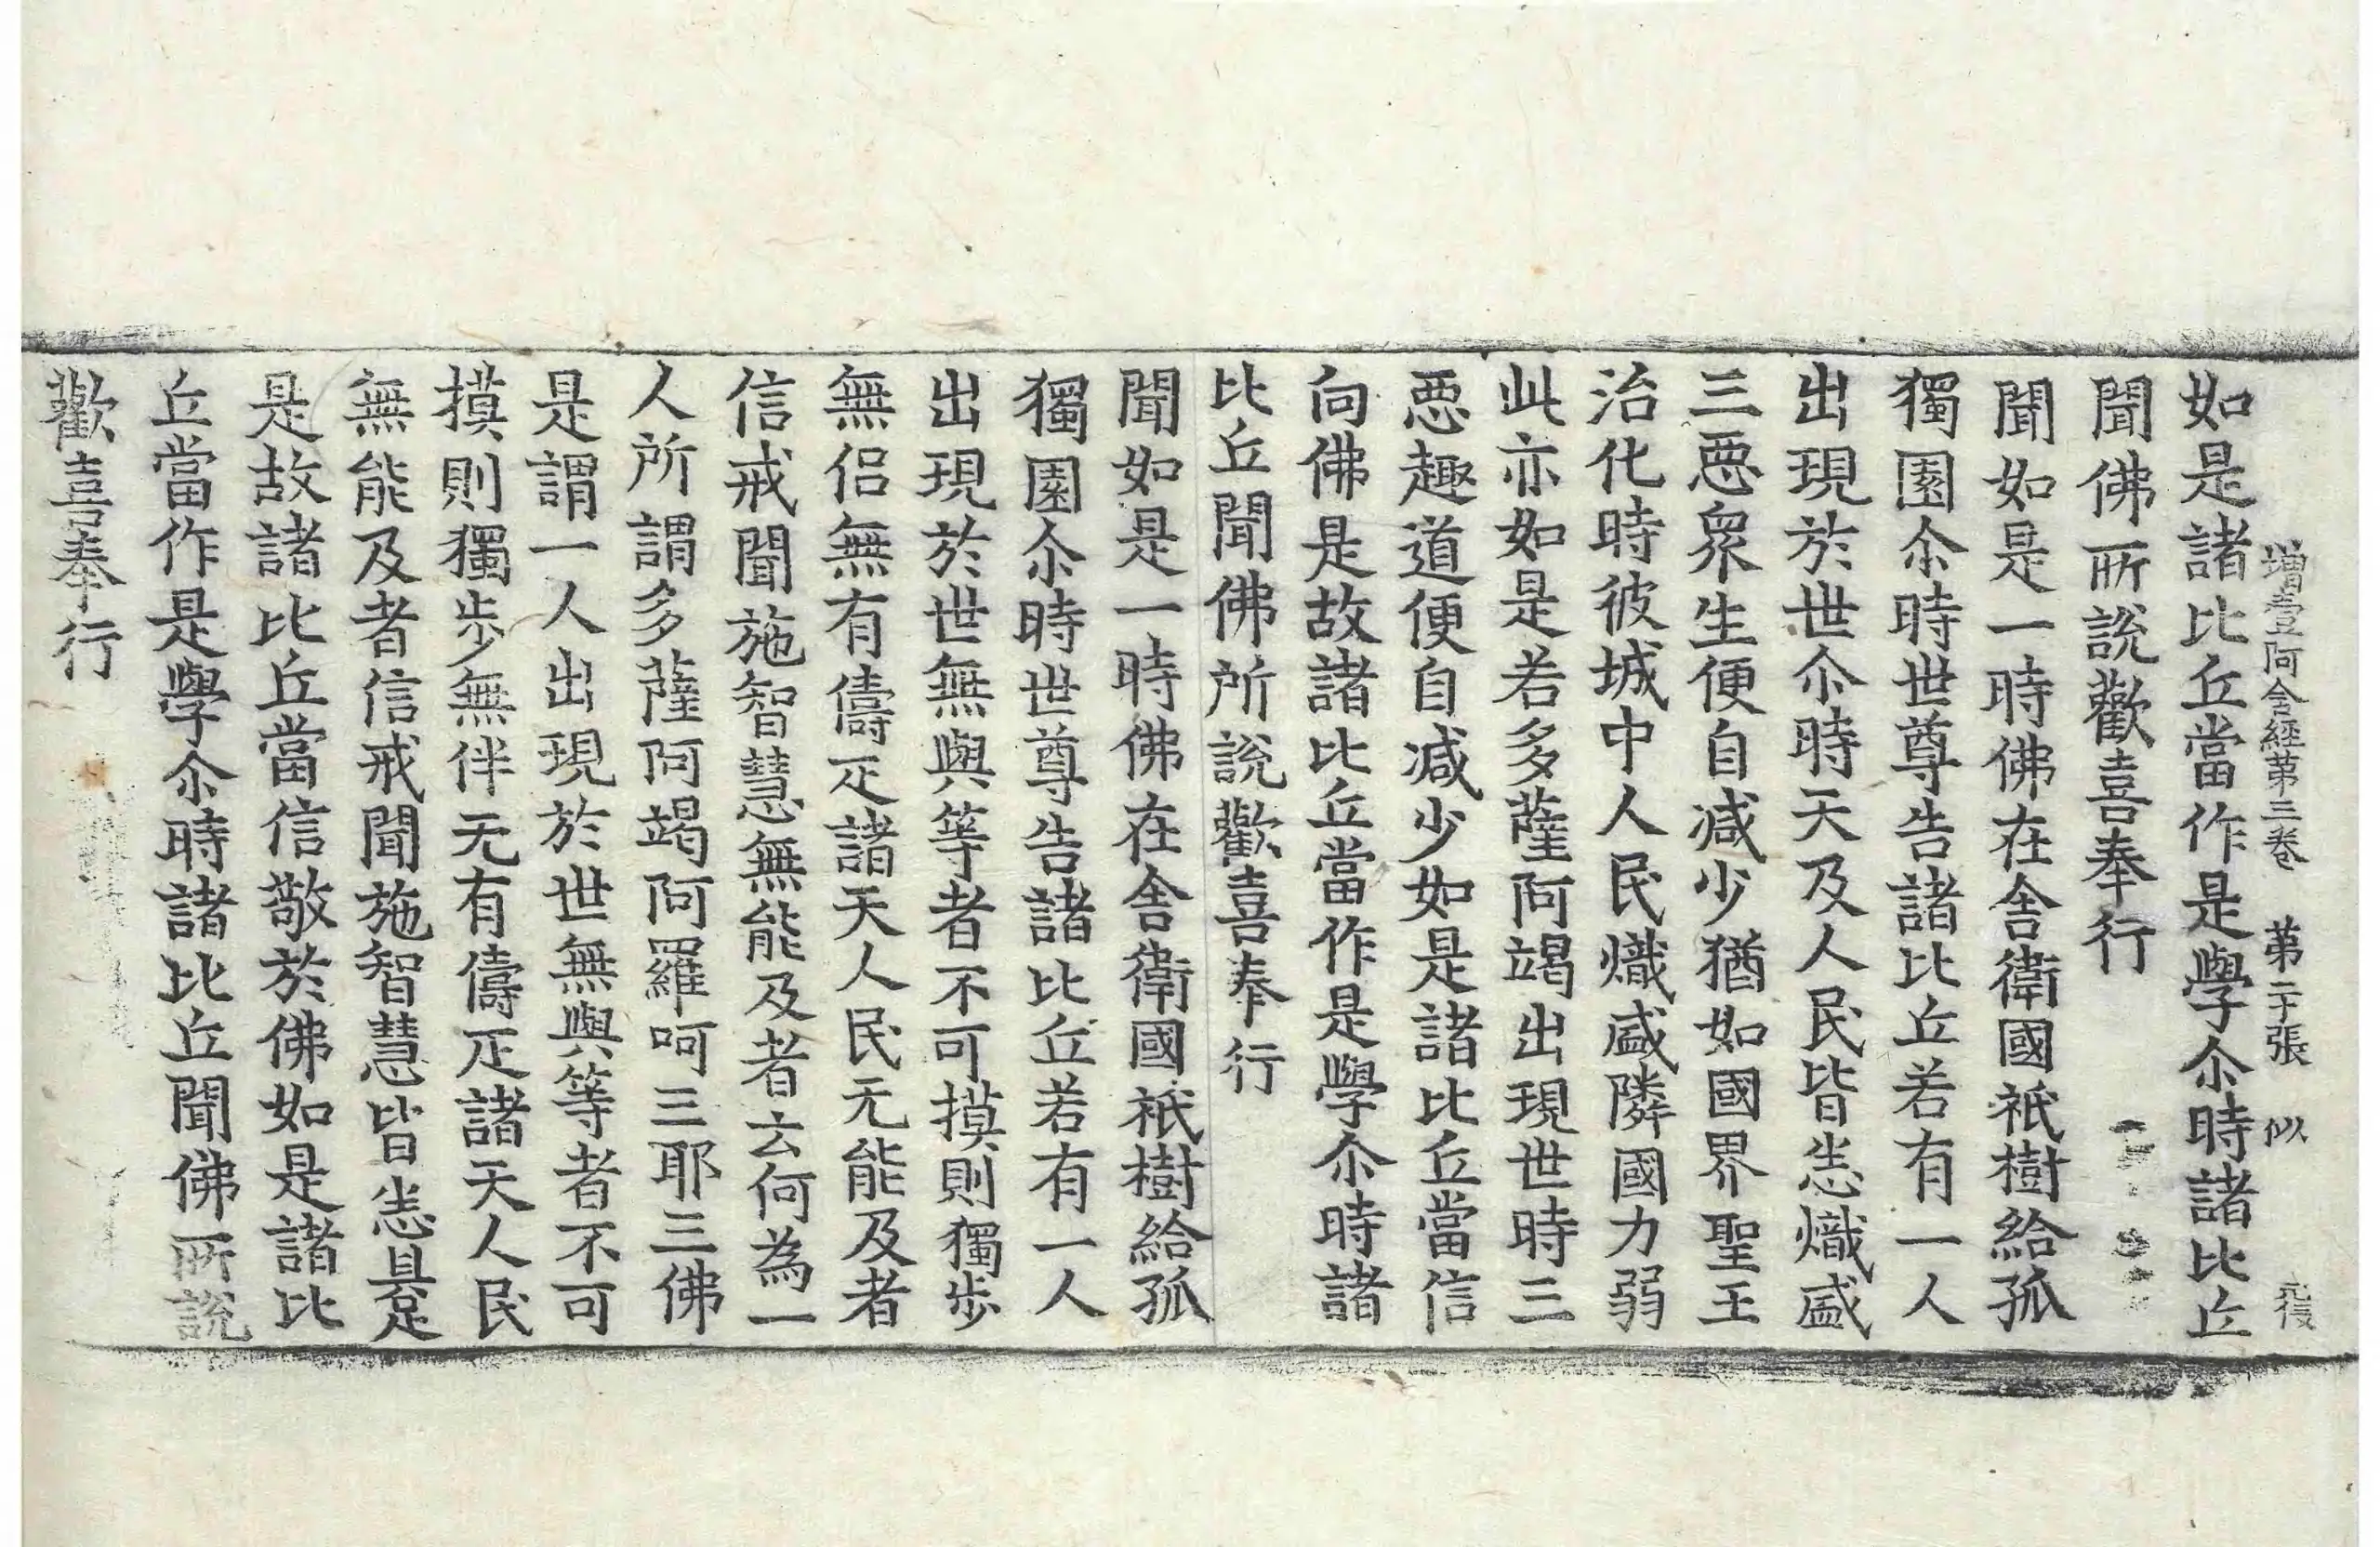 增壹阿含經第三卷 第二十張 似
如是諸比丘當作是學尒時諸比丘
聞佛所說歡喜奉行
聞如是一時佛在舍衛國祇樹給孤
獨園尒時世尊告諸比丘若有一人
出現於世尒時天及人民皆悉熾盛
三惡衆生便自減少猶如國界聖王
治化時彼城中人民熾盛隣國力弱
此亦如是若多薩阿竭出現世時三
惡趣道便自減少如是諸比丘當信
向佛是故諸比丘當作是學尒時諸
比丘聞佛所說歡喜奉行
聞如是一時佛在舍衛國祇樹給孤
獨園尒時世尊告諸比丘若有一人
出現於世無與等者不可摸則獨步
無侶無有儔疋諸天人民无能及者
信戒聞施智慧無能及者云何為一
人所謂多薩阿竭阿羅呵三耶三佛
是謂一人出現於世無與等者不可
摸則獨步無伴无有儔疋諸天人民
無能及者信戒聞施智慧皆悉具足
是故諸比丘當信敬於佛如是諸比
丘當作是學尒時諸比丘聞佛所說
歡喜奉行